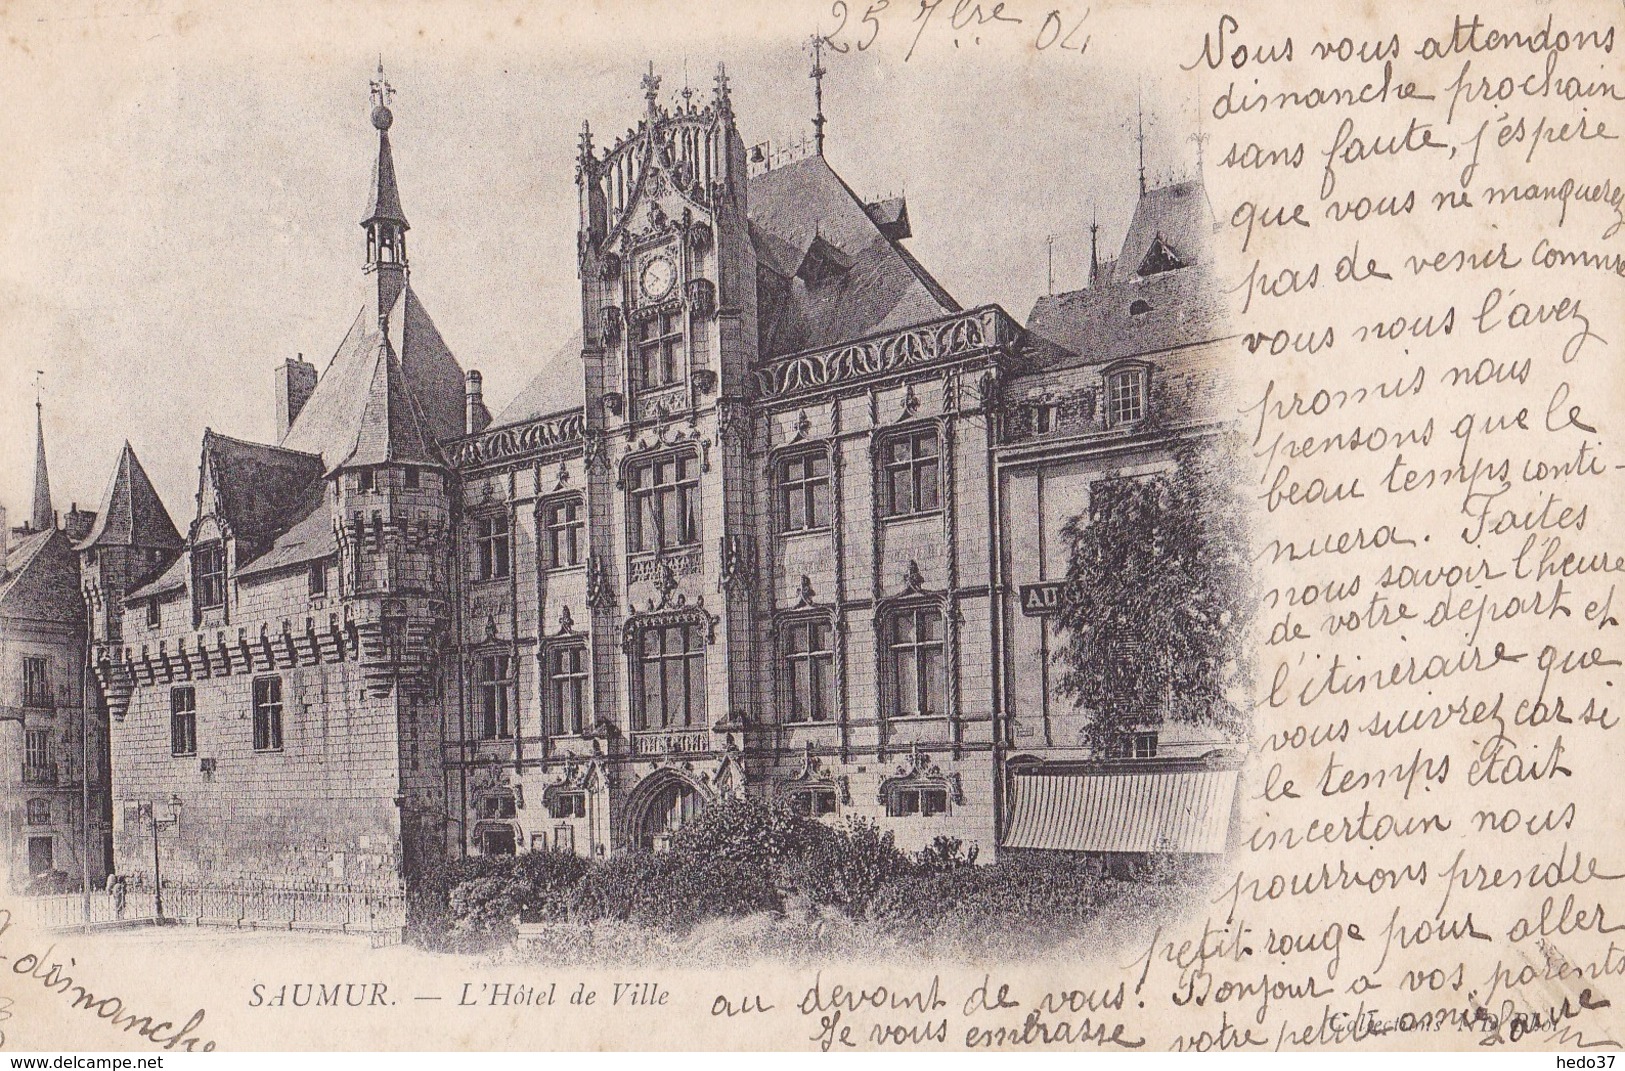 25 7bre 04
Nous vous attendons
dimanche prochain
sans faute, j'éspère
que vous ne manquerez
pas de venir comme
vous nous l'avez
promis nous
pensons que le
beau temps conti-
nuera. Faites
nous savoir l'heure
de votre départ et
l'itinéraire que
vous suivrez car si
le temps était
incertain nous
pourrions prendre
petit rouge pour aller
au devant de vous. Bonjour a vos parents
Je vous embrasse votre petite amie Laure
AU
a dimanche
SAUMUR. — L'Hôtel de Ville
Collections ND Phot
https://www.delcampe.net
hedo37